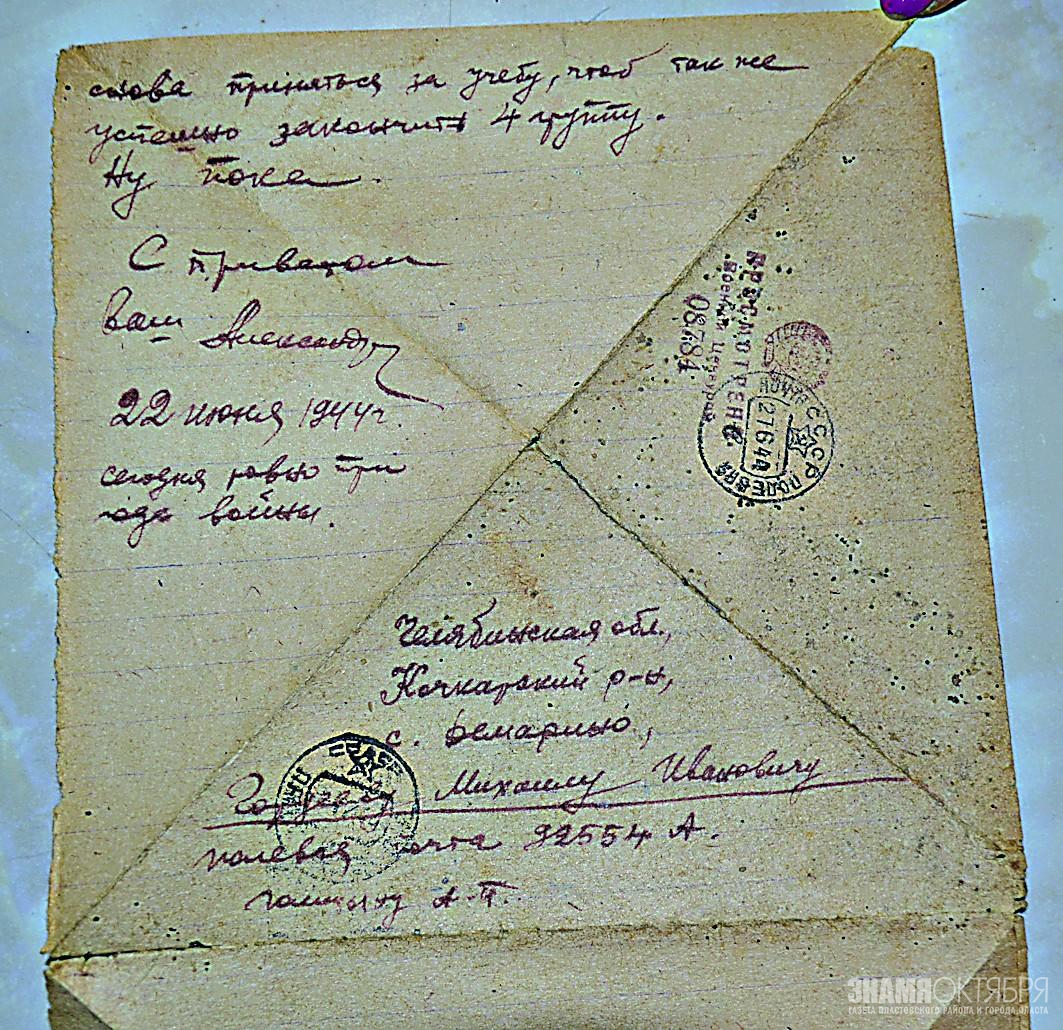 снова приняться за учебу, чтоб так же
успешно закончить 4 группу.
Ну пока.
С приветом
ваш Александр
22 июня 1944 г.
сегодня ровно три
года войны.
ПРОСМОТРЕНО
Военной Цензурой
08784
ПОЧТА СССР ПОЛЕВАЯ
27 6 44
Челябинская обл.,
Кочкарский р-н,
с.
Михаилу Ивановичу
полевая почта 92554 А.
А. П.
ЗНАМЯ ОКТЯБРЯ
ГАЗЕТА ПЛАСТОВСКОГО РАЙОНА И ГОРОДА ПЛАСТА